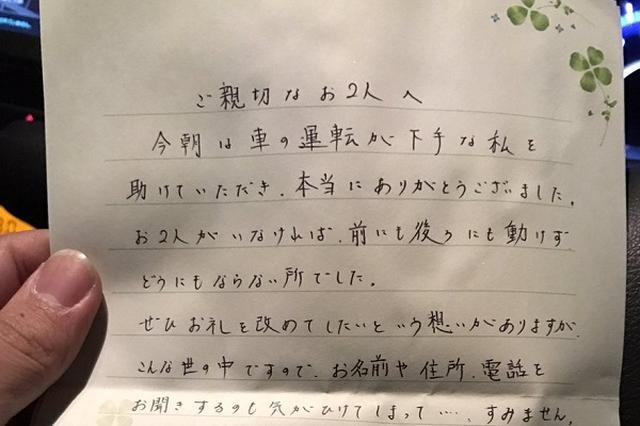 ご親切なお2人へ
今朝は車の運転が下手な私を
助けていただき、本当にありがとうございました。
お2人がいなければ、前にも後ろにも動けず
どうにもならない所でした。
ぜひお礼を改めてしたいという想いがありますが、
こんな世の中ですので、お名前や住所、電話を
お聞きするのも気がひけてしまって……、すみません。